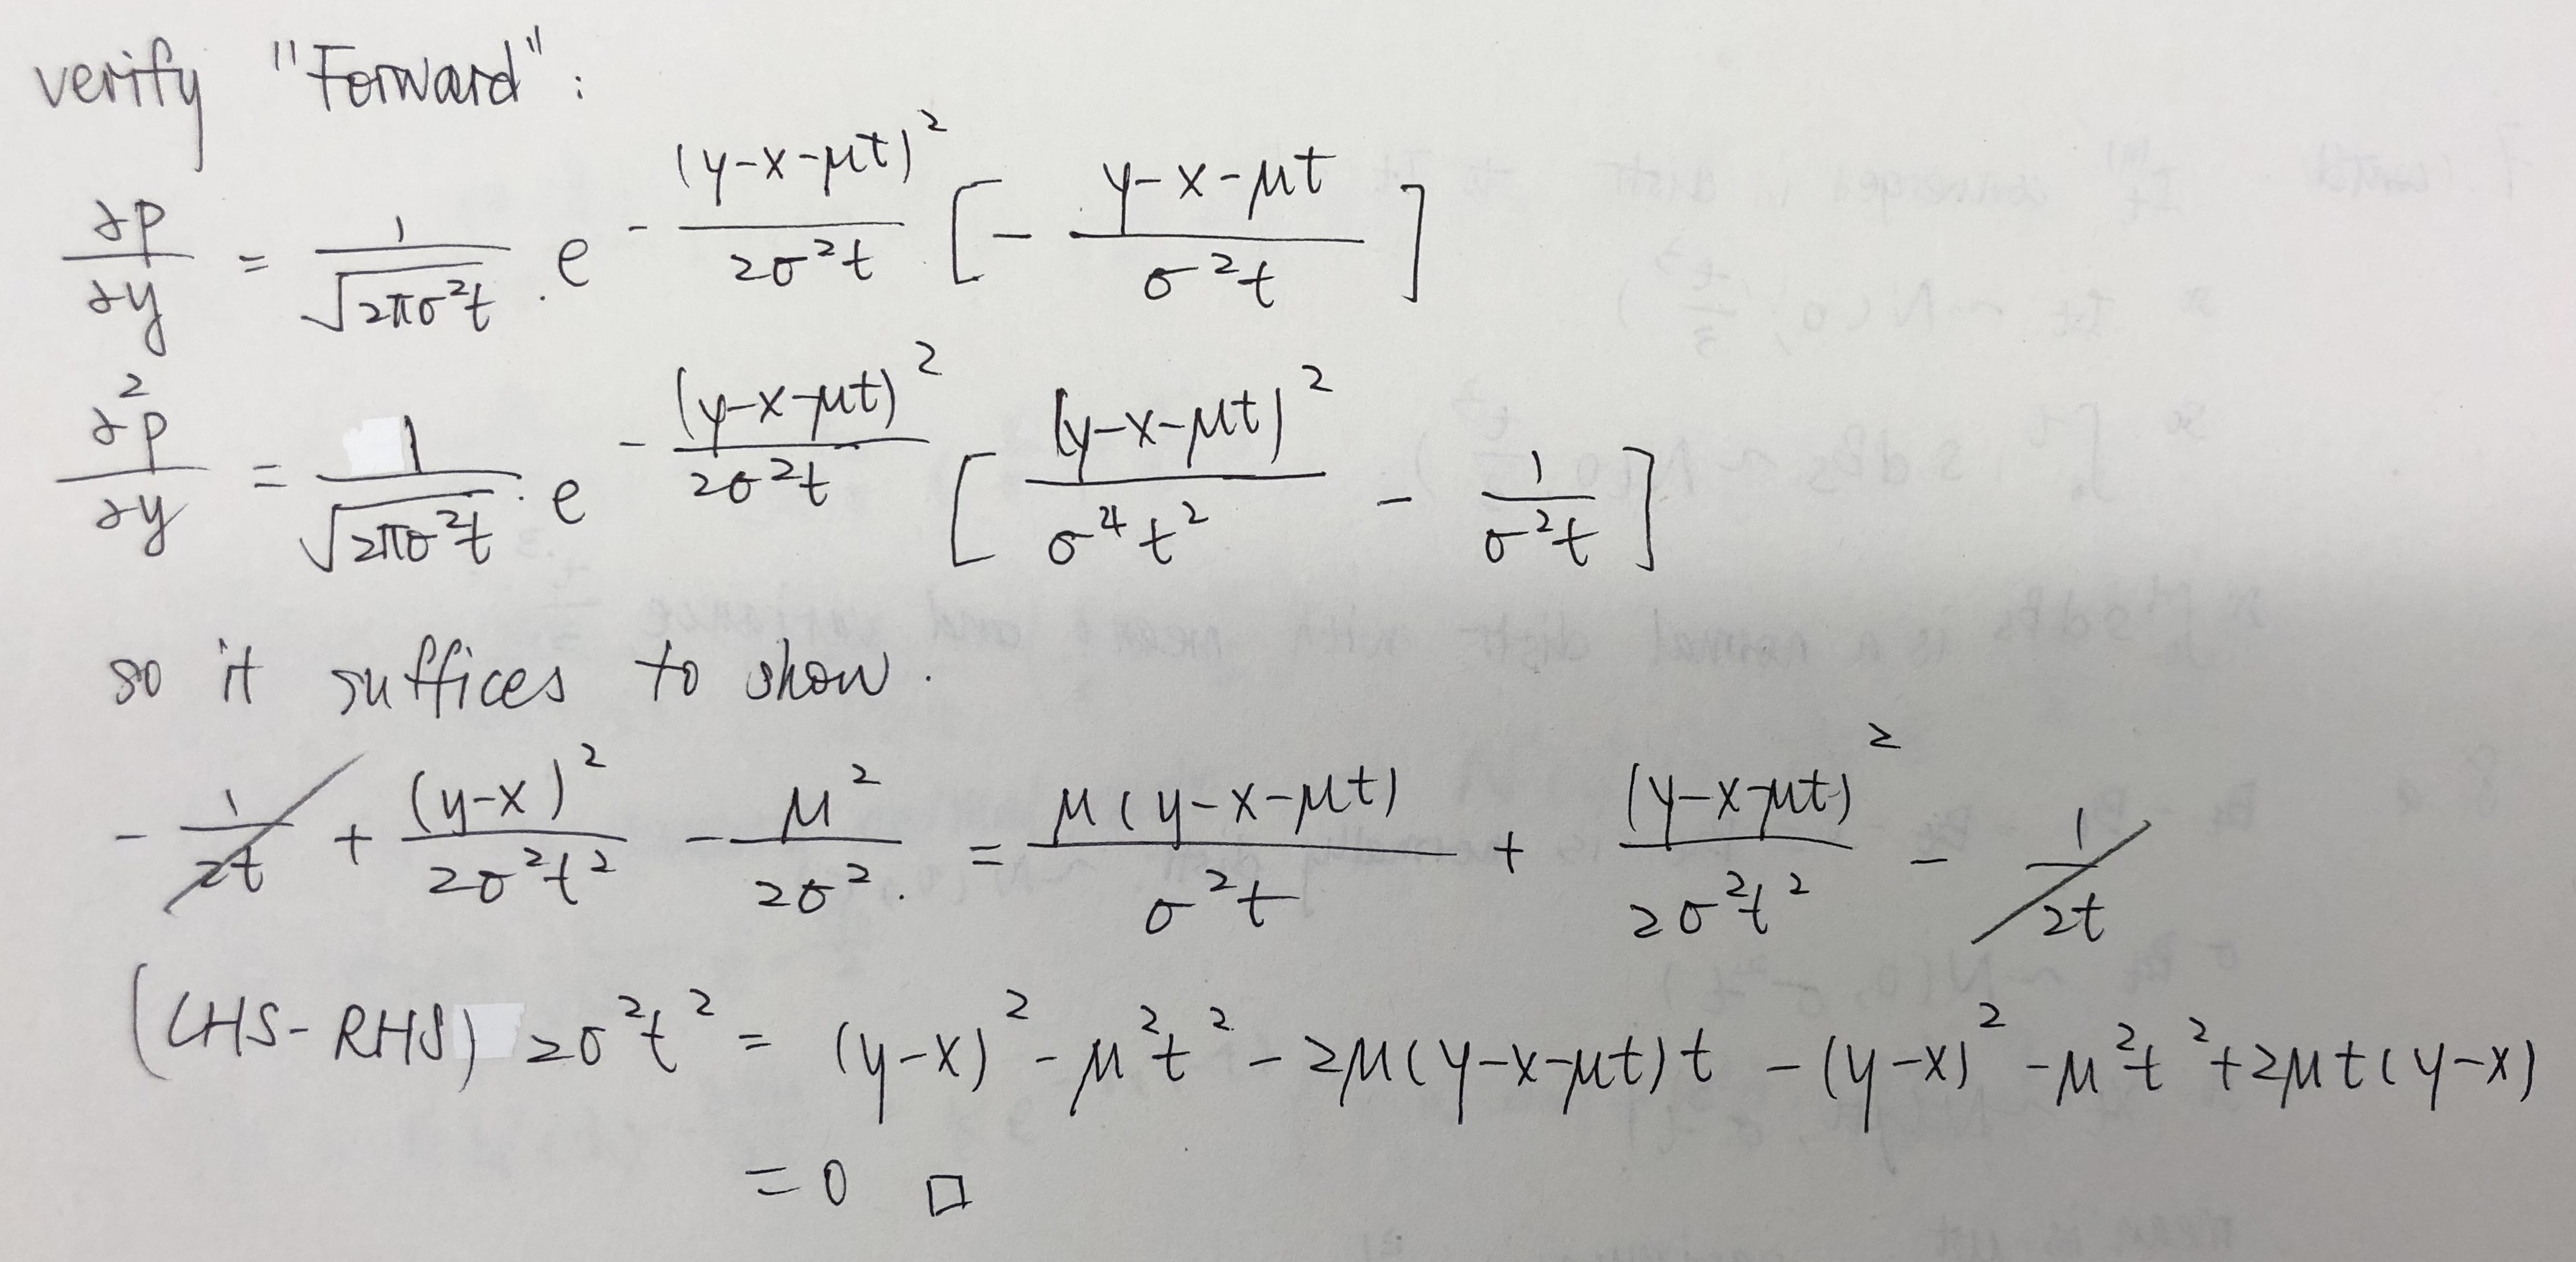 verify "Forward":
∂p/∂y = 1/√(2πσ²t) · e^(-(y-x-μt)²/(2σ²t)) [- (y-x-μt)/(σ²t)]
∂²p/∂y = 1/√(2πσ²t) · e^(-(y-x-μt)²/(2σ²t)) [(y-x-μt)²/(σ⁴t²) - 1/(σ²t)]
so it suffices to show.
- 1/(2t) + (y-x)²/(2σ²t²) - μ²/(2σ²). = μ(y-x-μt)/(σ²t) + (y-x-μt)²/(2σ²t²) - 1/(2t)
(LHS-RHS) 2σ²t² = (y-x)² - μ²t² - 2μ(y-x-μt)t - (y-x)² - μ²t² + 2μt(y-x)
= 0 □